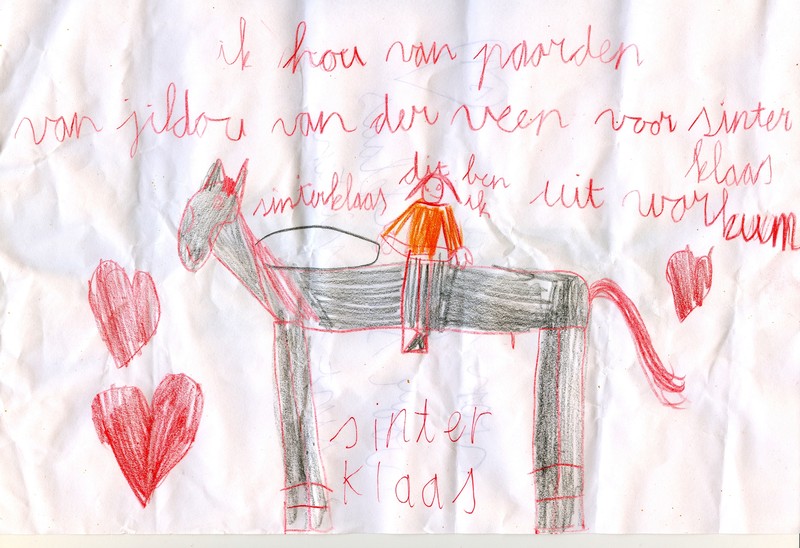 ik hou van paarden
van jildou van der veen voor sinter
klaas
sinterklaas dit ben
ik
uit workum
sinter
klaas